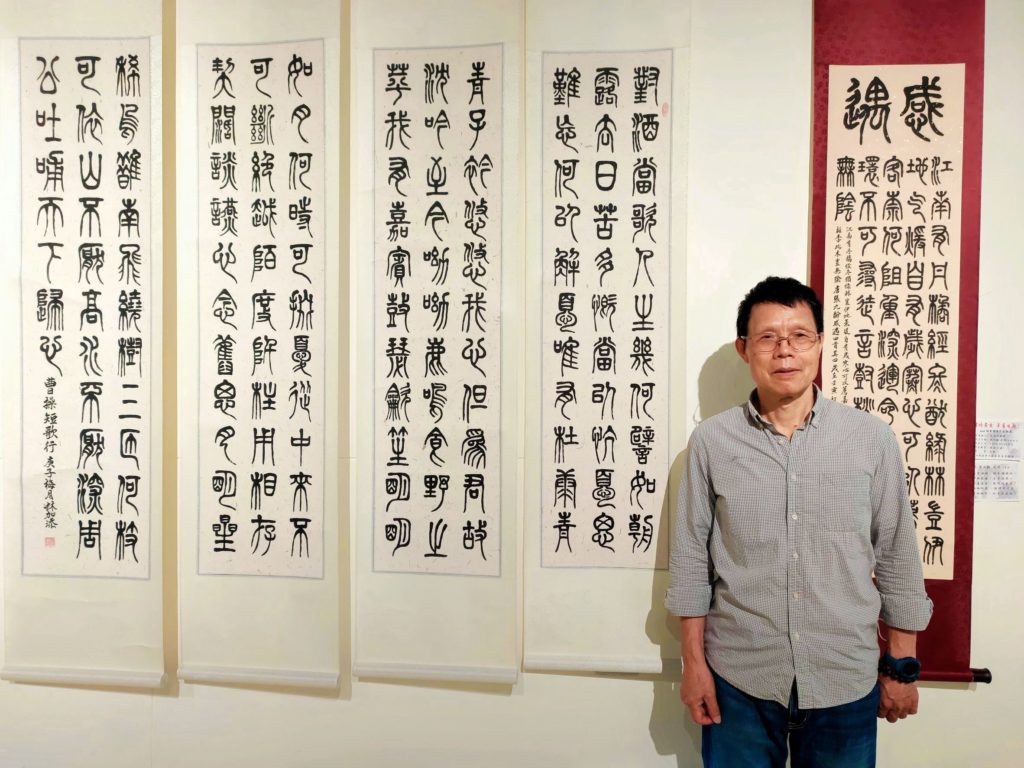 感遇
江南有丹橘經冬猶綠林豈伊
地气暖自有歲寒心可以薦
客奈何阻重深運命
環不可尋徒言樹桃
無陰
江南有丹橘經冬猶綠林豈伊地氣暖自有歲寒心可以薦嘉
樹桃李此木豈無陰唐張九齡感遇四首其四歲在壬寅
對酒當歌人生幾何譬如朝
露去日苦多慨當以慷憂思
難忘何以解憂唯有杜康青
青子衿悠悠我心但為君故
沈吟至今呦呦鹿鳴食野之
苹我有嘉賓鼓瑟龡笙明明
如月何時可掇憂從中來不
可斷絕越陌度阡枉用相存
契闊談讌心念舊恩月明星
稀烏鵲南飛繞樹三匝何枝
可依山不厭高水不厭深周
公吐哺天下歸心
曹操短歌行庚子梅月林加添